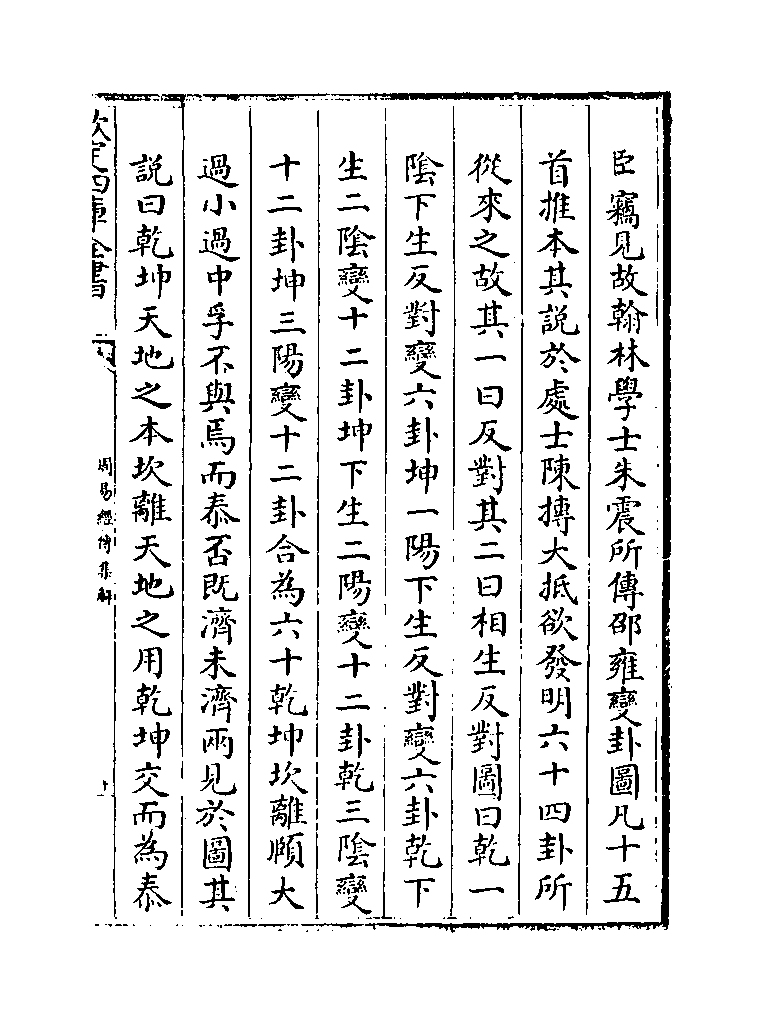 臣竊見故翰林學士朱震所傳邵雍變卦圖凡十五
首推本其説於處士陳摶大抵欲發明六十四卦所
從來之故其一曰反對其二曰相生反對圖曰乾一
陰下生反對變六卦坤一陽下生反對變六卦乾下
生二陰變十二卦坤下生二陽變十二卦乾三陰變
十二卦坤三陽變十二卦合為六十乾坤坎離頤大
過小過中孚不與焉而泰否既濟未濟兩見於圖其
説曰乾坤天地之本坎離天地之用乾坤交而為泰
欽定四庫全書
周易經傳集解